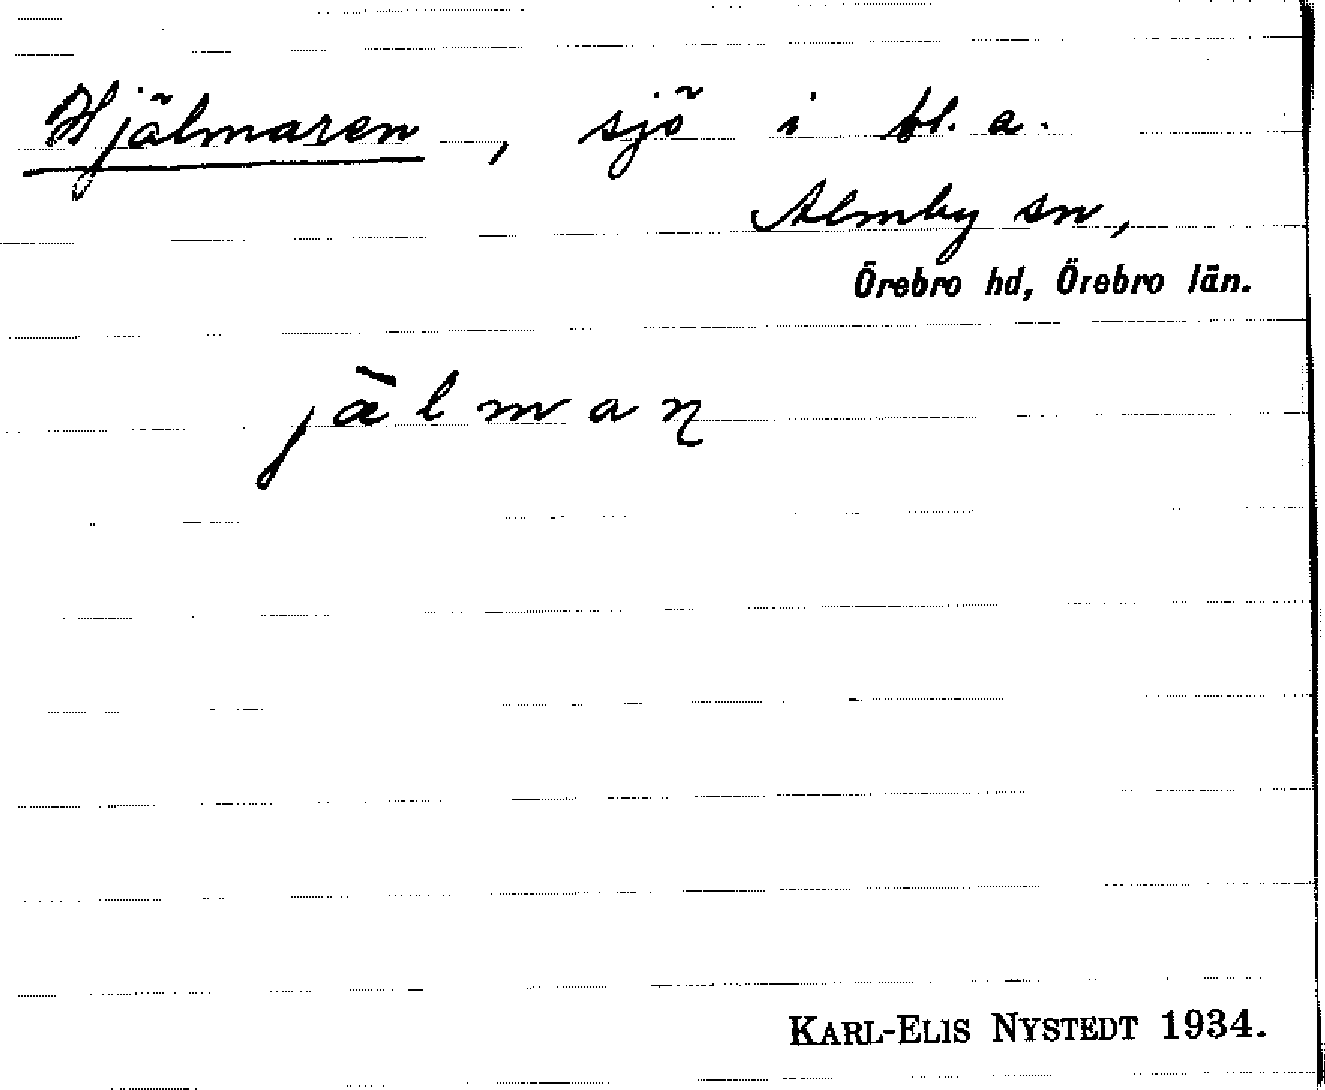 Hjälmaren, sjö i bl. a.
Almby sn,
Örebro hd, Örebro län.
jæ̀lmaɳ
KARL-ELIS NYSTEDT 1934.